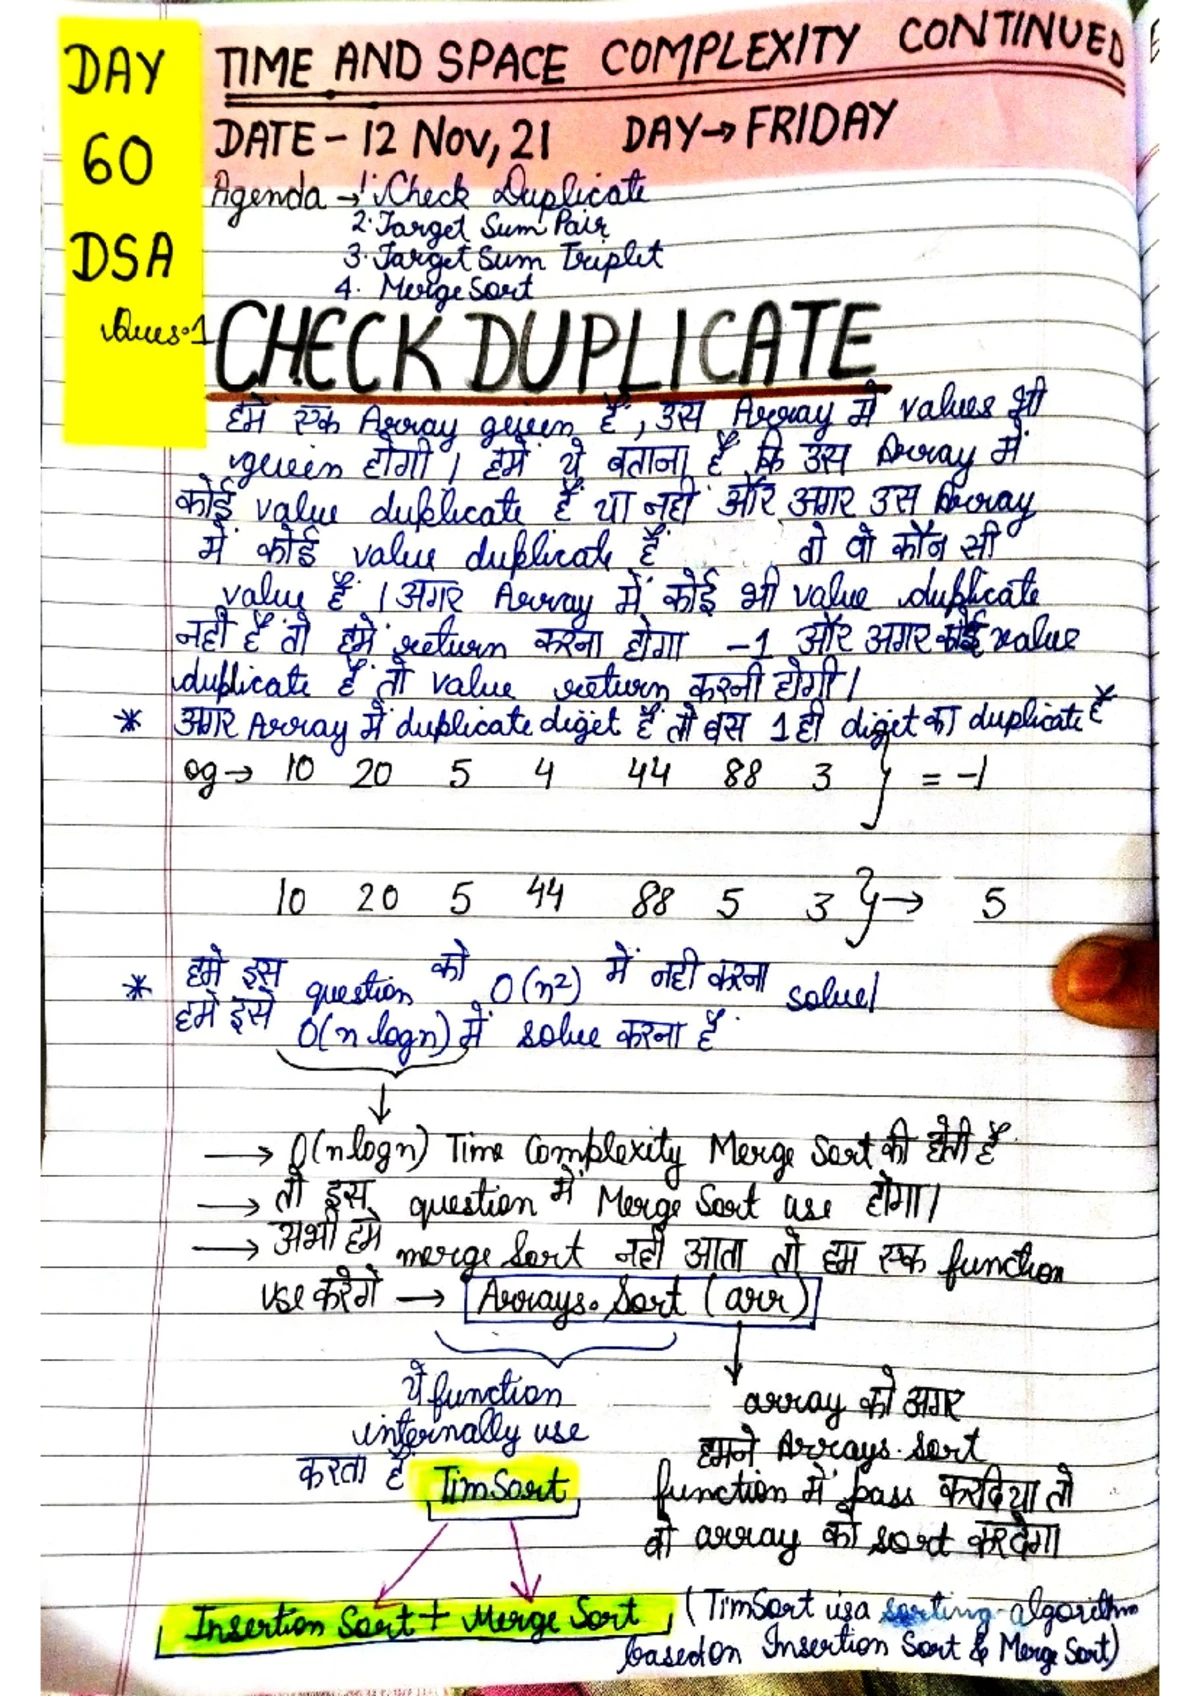 DAY
60
DSA
TIME AND SPACE COMPLEXITY CONTINUED
DATE - 12 Nov, 21 DAY→ FRIDAY
Agenda → 1. Check Duplicate
2. Target Sum Pair
3. Target Sum Triplet
4. Merge Sort
Ques.1 CHECK DUPLICATE
हमे एक Array given है, उस Array में values भी
given होगी। हमे ये बताना है कि उस Array में
कोई value duplicate है या नही और अगर उस Array
में कोई value duplicate है तो वो कौन सी
value है। अगर Array में कोई भी value duplicate
नही है तो हमे return करना होगा -1 और अगर कोई value
duplicate है तो value return करनी होगी।
* अगर Array में duplicate digit है तो बस 1 ही digit का duplicate है *
eg → 10 20 5 4 44 88 3 } = -1
10 20 5 44 88 5 3 } → 5
* हमे इस question को O(n²) में नही करना solve।
हमे इसे O(n logn) में solve करना है
→ O(nlogn) Time Complexity Merge Sort की होती है
→ तो इस question में Merge Sort use होगा।
→ अभी हमे merge sort नही आता तो हम एक function
use करेंगे → Arrays.Sort (arr)
ये function
internally use
करता है TimSort
array को अगर
हमने Arrays.sort
function में pass करदिया तो
वो array को sort करदेगा
Insertion Sort + Merge Sort (TimSort is a sorting algorithm
based on Insertion Sort & Merge Sort)